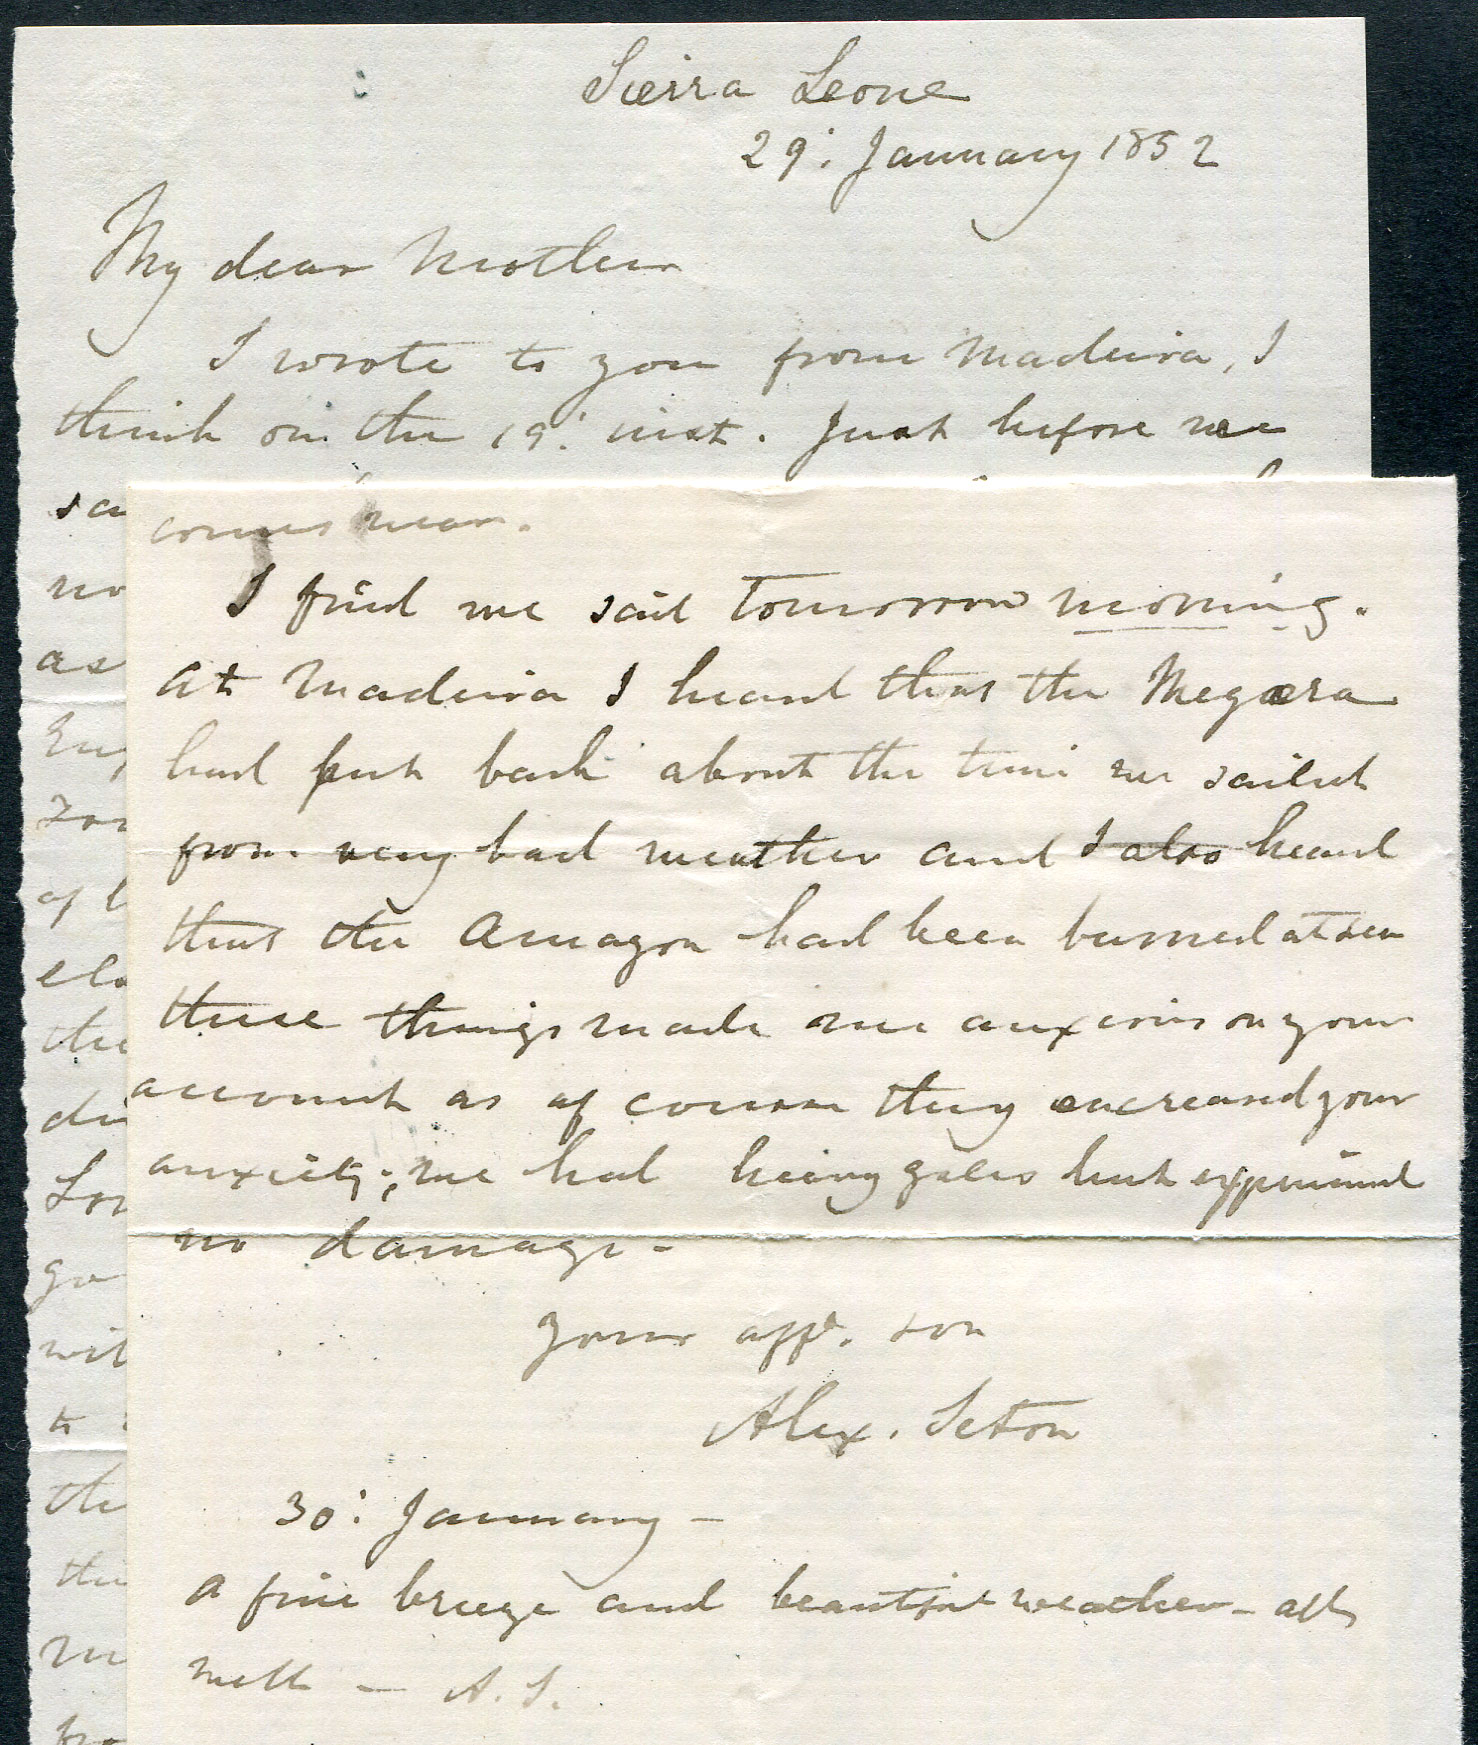 Sierra Leone
29: January 1852
My dear Mother
I wrote to you from Madeira, I
think on the 19: inst. Just before we
sa
no
as
Eng
of
elo
the
di
Lor
go
wit
to
the
the
fro
comes near.
I find we sail tomorrow morning.
At Madeira I heard that the Megæra
had put back about the time we sailed
from very bad weather and I also heard
that the Amazon had been burned at sea
these things made me anxious on your
account as of course they encreased your
anxiety; we had heavy gales but experienced
no damage -
Your afft. son
Alex. Seton
30: January -
A fine breeze and beautiful weather - all
well - A.S.